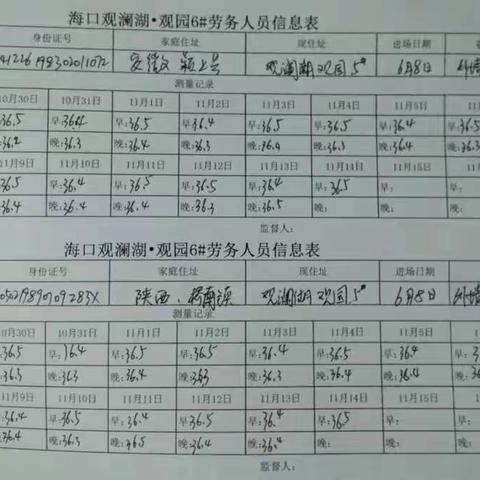 海口观澜湖•观园6#劳务人员信息表
身份证号 家庭住址 现住址 进场日期
安徽 颍上县 观澜湖观园5# 6月8日
测量记录
10月30日 10月31日 11月1日 11月2日 11月3日 11月4日 11月5日
36.5 早:36.4 早:36.5 早:36.4 早:36.5 早:36.5 早:36.4 早:36.5
36.2 晚:36.3 晚:36.4 晚:36.3 晚:36.4 晚:36.3 晚:36.4 晚:36.3
11月9日 11月10日 11月11日 11月12日 11月13日 11月14日 11月15日
36.5 早:36.4 早:36.5 早:36.5 早:36.4 早:36.5 早: 早:
36.4 晚:36.4 晚:36.4 晚:36.3 晚:36.5 晚: 晚: 晚:
监督人:
海口观澜湖•观园6#劳务人员信息表
身份证号 家庭住址 现住址 进场日期
陕西 观澜湖观园5# 6月8日
测量记录
10月30日 10月31日 11月1日 11月2日 11月3日 11月4日 11月5日
36.5 早:36.4 早:36.5 早:36.5 早:36.4 早:36.5 早:36.4 早:36.5
36.3 晚:36.3 晚:36.4 晚:36.3 晚:36.3 晚:36.4 晚:36.5 晚:36.
11月9日 11月10日 11月11日 11月12日 11月13日 11月14日 11月15日
36.4 早:36.5 早:36.4 早:36.5 早:36.4 早:36.5 早: 早:
36.4 晚:36.3 晚:36.5 晚:36.4 晚:36.4 晚: 晚: 晚:
监督人: